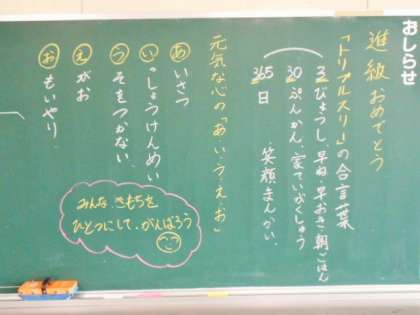 おしらせ
進級おめでとう
「トリプルスリー」の合言葉
3びょうし、早ね・早おき・朝ごはん
30ぷんかん、家ていがくしゅう
365日 笑顔まんかい
元気な心の「あ・い・う・え・お」
あいさつ
いっしょうけんめい
うそをつかない
えがお
おもいやり
みんな、きもちを
ひとつにして、がんばろう